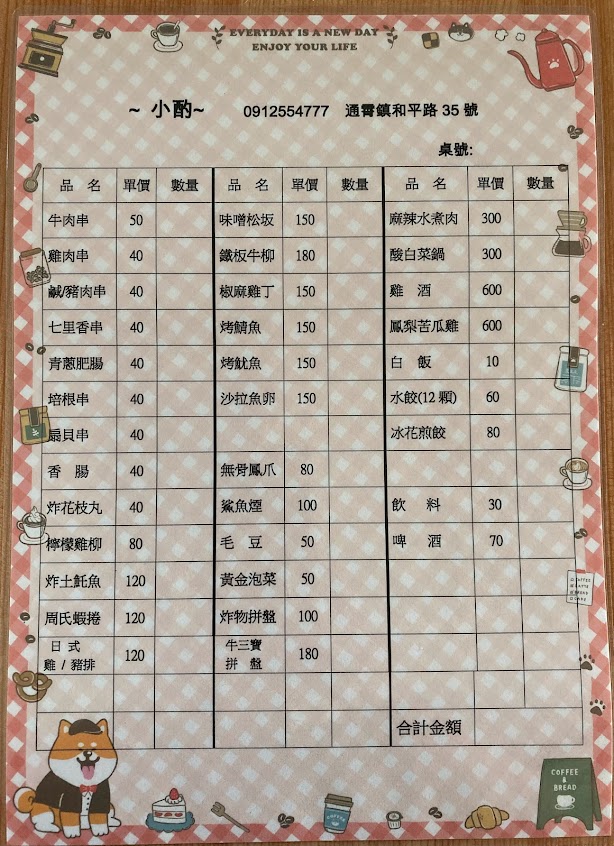 EVERYDAY IS A NEW DAY
ENJOY YOUR LIFE
~ 小酌~ 0912554777 通霄鎮和平路 35 號
桌號:
品 名 單價 數量 品 名 單價 數量 品 名 單價 數量
牛肉串 50 味噌松坂 150 麻辣水煮肉 300
雞肉串 40 鐵板牛柳 180 酸白菜鍋 300
鹹/豬肉串 40 椒麻雞丁 150 雞 酒 600
七里香串 40 烤鯖魚 150 鳳梨苦瓜雞 600
青蔥肥腸 40 烤魷魚 150 白 飯 10
培根串 40 沙拉魚卵 150 水餃(12 顆) 60
扇貝串 40 冰花煎餃 80
香 腸 40 無骨鳳爪 80
炸花枝丸 40 鯊魚煙 100 飲 料 30
檸檬雞柳 80 毛 豆 50 啤 酒 70
炸土魠魚 120 黃金泡菜 50
周氏蝦捲 120 炸物拼盤 100
日 式
雞 / 豬排 120 牛三寶
拼 盤 180
合計金額
COFFEE
&
BREAD